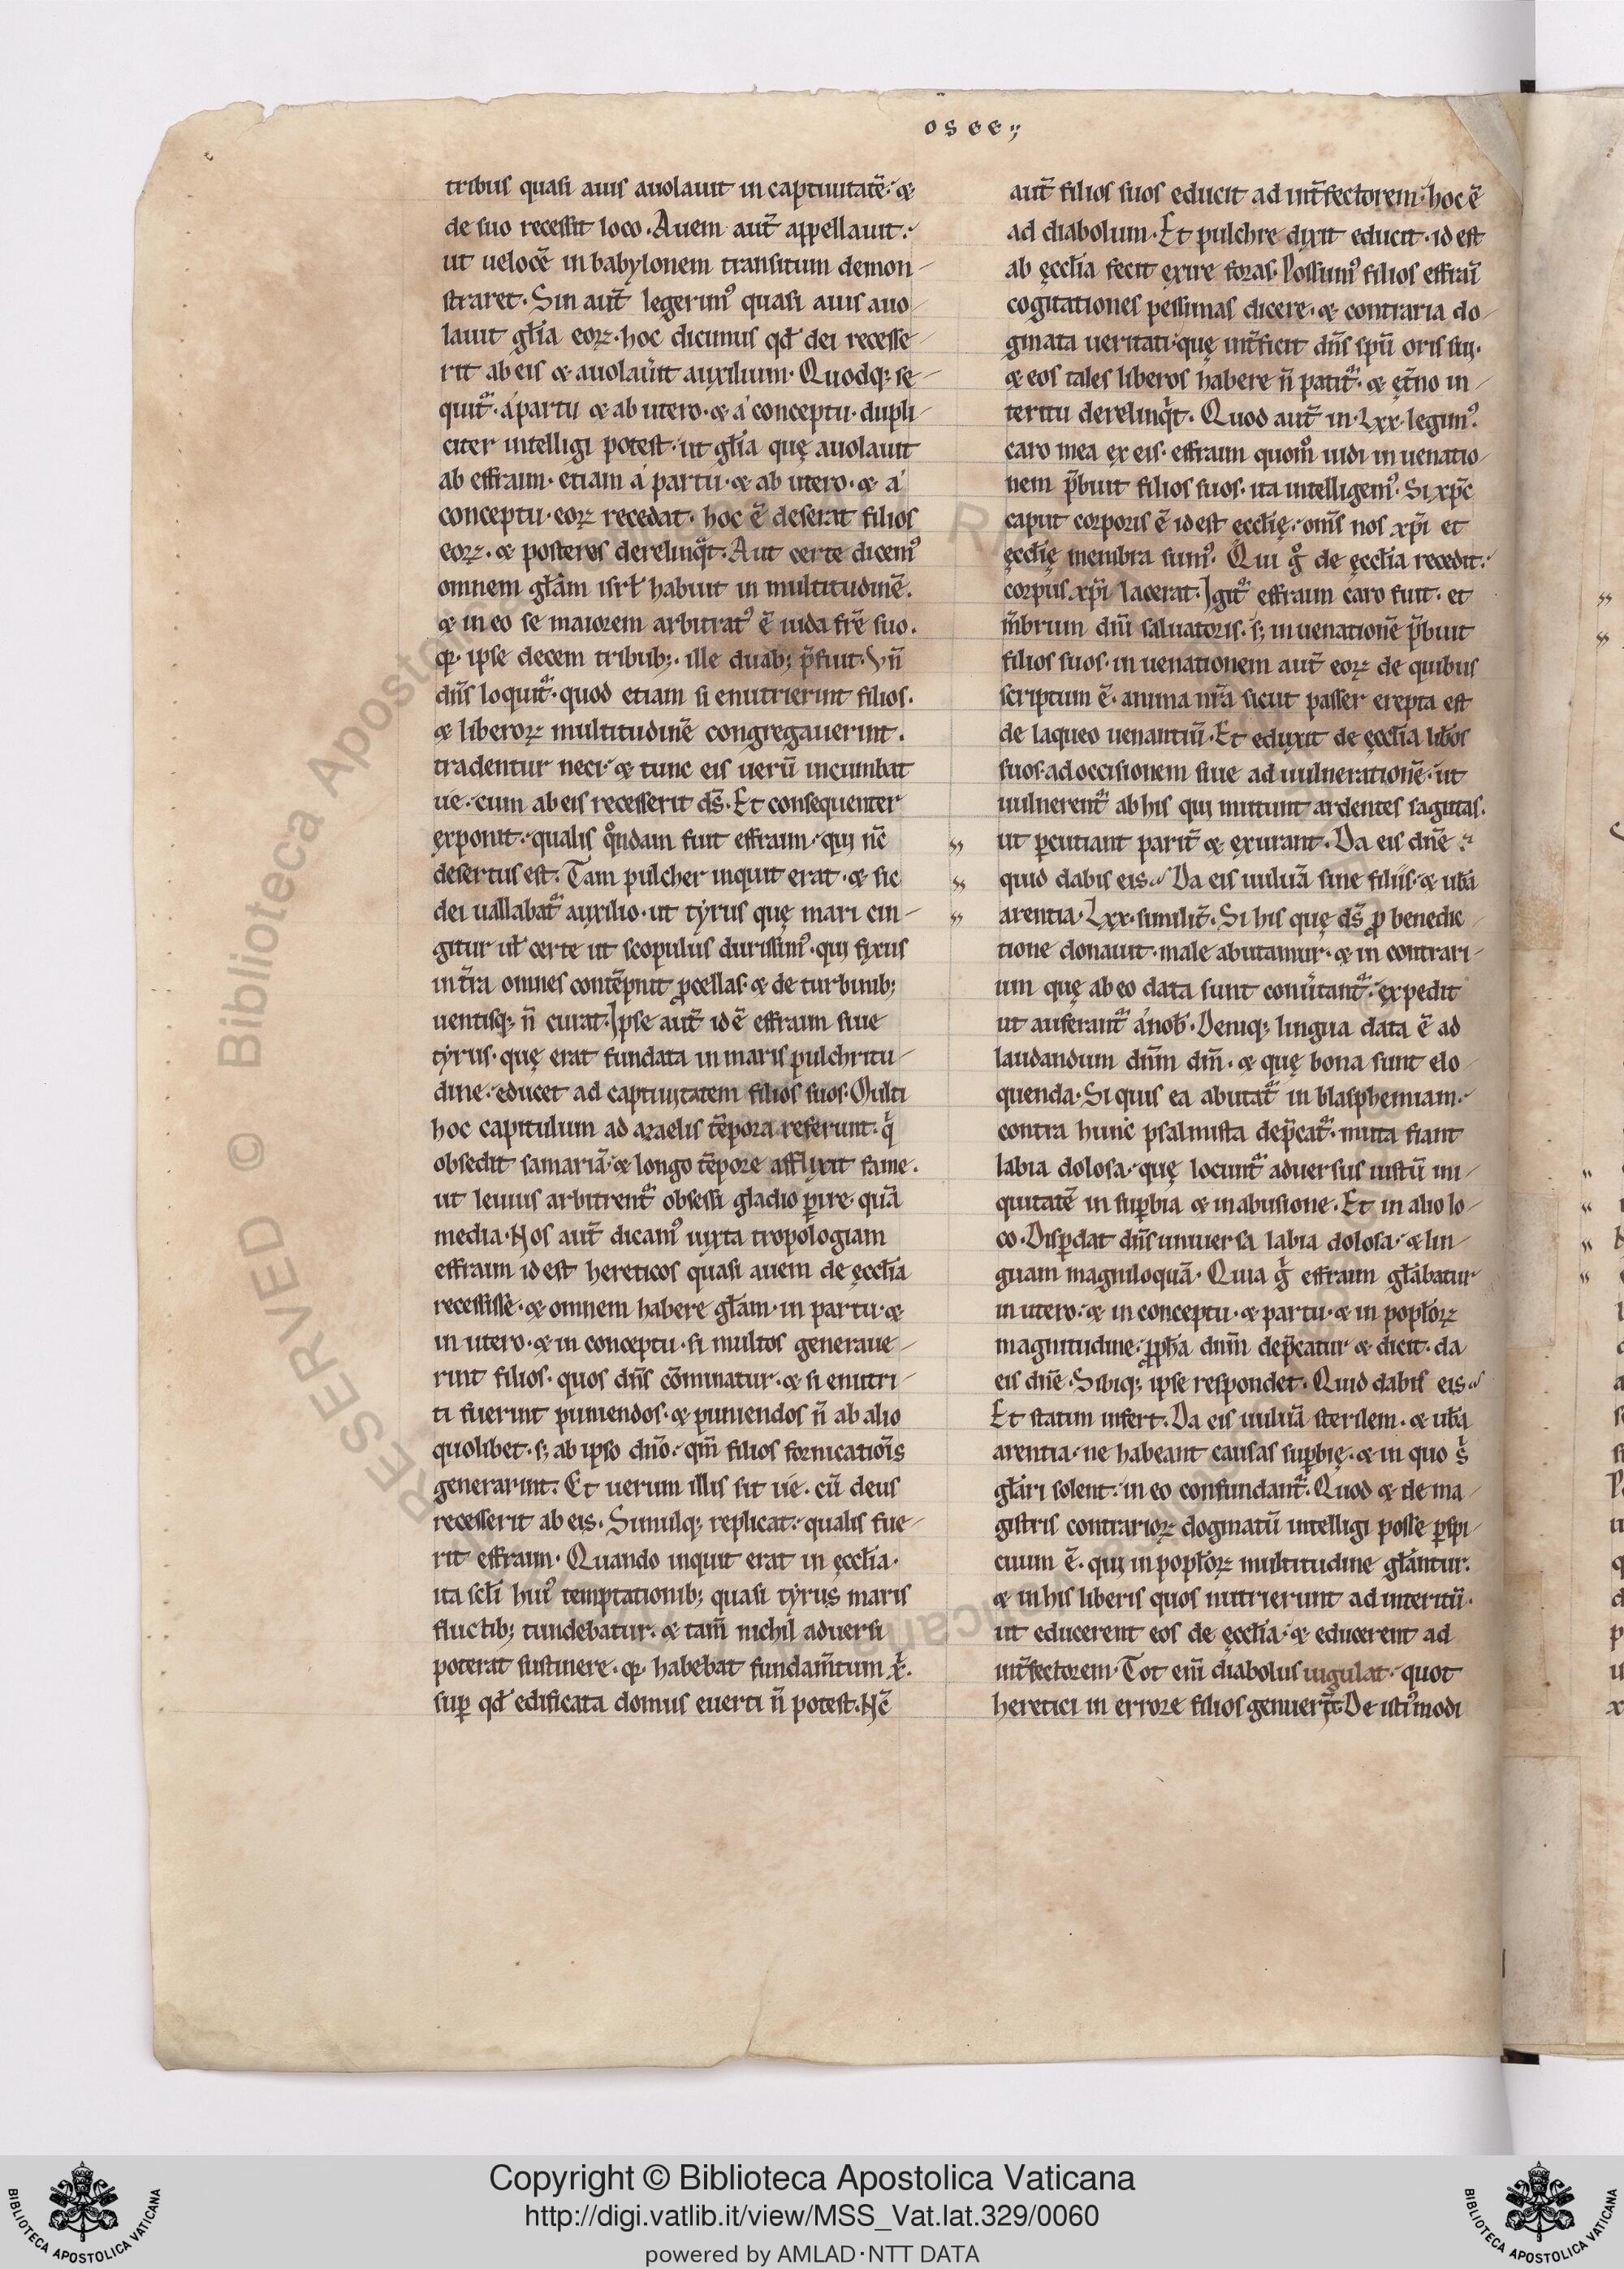 osee;
tribus quasi auis auolauit in captiuitatē· &
de suo recessit loco. Auem aut̄ appellauit·
ut uelocē in babylonem transitum demon-
straret. Sin aut̄ legerim᾽ quasi auis auo-
lauit gl̄ia eoꝝ· hoc dicimus qđ dei recesse-
rit ab eis & auolauit auxilium. Quodq; se-
quit᷑· á partu & ab utero· & á conceptu· dupli-
citer intelligi potest· ut gl̄ia quę auolauit
ab effraim· etiam á partu· & ab utero· & á
conceptu· eoꝝ recedat· hoc ē deserat filios
eoꝝ· & posteros derelinqͣt. Aut certe dicem᾽
omnem gl̄am isrł habuit in multitudinē·
& in eo se maiorem arbitrat᾽ ē iuda fr̄e suo·
qꝛ ipse decem tribub;· ille duab; p̄fuit· Vñ
dn̄s loquit᷑· quod etiam si enutrierint filios·
& liberoꝝ multitudinē congregauerint·
tradentur neci· & tunc eis uerū incumbat
ue· cum ab eis recesserit ds̄. Et consequenter
exponit· qualis qͦndam fuit effraim· qui nc̄
desertus est. Tam pulcher inquit erat· & sic
dei uallabat᷑ auxilio· ut tyrus quę mari cin-
gitur ul̄ certe ut scopulus durissim᾽· qui fixus
int̄ra omnes contēpnit ꝓcellas· & de turbinib;
uentisq; n̄ curat. Ipse aut̄ idē effraim siue
tyrus· quę erat fundata in maris pulchritu-
dine· educet ad captiuitatem filios suos. Multi
hoc capitulum ad azaelis tēpora referunt· qͥ
obsedit samariā· & longo tēpore afflixit fame·
ut leuius arbitrent᷑ obsessi gladio ꝑire· quā
media. Nos aut̄ dicam᾽ iuxta tropologiam
effraim id est hereticos quasi auem de ęccl̄ia
recessisse· & omnem habere gl̄am· in partu· &
in utero· & in conceptu· si multos generaue-
rint filios· quos dn̄s cōminatur· & si enutri-
ti fuerint puniendos· & puniendos n̄ ab alio
quolibet· s; ab ipso dn̄o· qm̄ filios fornicatiōis
generarint. Et uerum illis sit ue· cū deus
recesserit ab eis. Simulq; replicat· qualis fue-
rit effraim. Quando inquit erat in ęccl̄ia·
ita scl̄i hui᾽ temptationib; quasi tyrus maris
fluctib; tundebatur· & tam̄ nichil aduersi
poterat sustinere· qꝛ habebat fundam̄tum xͥ·
suꝑ qđ edificata domus euerti n̄ potest. Nc̄
aut̄ filios suos educit ad int̄fectorem· hoc ē
ad diabolum. Et pulchre dixit educit· id est
ab ęccl̄ia fecit exire foras. Possum᾽ filios effraī
cogitationes pessimas dicere· & contraria do-
gmata ueritati· quę int̄ficit dn̄s spū oris sui·
& eos tales liberos habere n̄ patit᷑· & ęt̄no in-
teritu derelinqͥt. Quod aut̄ in· Lxx· legim᾽·
caro mea ex eis· effraim quom̊ uidi in uenatio-
nem p̄buit filios suos· ita intelligem᾽· Si xp̄c
caput corporis ē id est ęccl̄ię· om̄s nos xp̄i et
ęccl̄ię membra sum᾽. Qui gͦ de ęccl̄ia recedit·
corpus xp̄i lacerat. Igit᷑ effraim caro fuit· et
m̄brum dn̄i saluatoris· s; in uenationē p̄buit
filios suos· in uenationem aut̄ eoꝝ de quibus
scriptum ē· anima nr̄a sicut passer erepta est
de laqueo uenantiū. Et eduxit de ęccl̄ia lib̄os
suos· ad occisionem siue ad uulnerationē· ut
uulnerent᷑ ab his qui mittunt ardentes sagittas·
ut ꝑcutiant parit̄ & exurant. Da eis dn̄e ·
quid dabis eis· Da eis uuluā sine filiis· & ub̄a
arentia· Lxx· similit̄. Si his quę ds̄ ꝓ benedic-
tione donauit· male abutamur· & in contrari-
um quę ab eo data sunt conuͥtant᷑· expedit
ut auferant᷑ á nob̄. Deniq; lingua data ē ad
laudandum dn̄m dm̄· & quę bona sunt elo-
quenda. Si quis ea abutat᷑ in blasphemiam·
contra hunc psalmista dep̄cat᷑· muta fiant
labia dolosa· quę locunt᷑ aduersus iustū ini-
quitatē in suꝑbia & in abusione. Et in alio lo-
co. Disꝑdat dn̄s uniuersa labia dolosa· & lin-
guam magniloquā. Quia gͦ effraim gl̄abatur
in utero· & in conceptu· & partu· & in popl̄oꝝ
magnitudine· ꝓph̄a dn̄m dep̄catur & dicit· da
eis dn̄e. Sibiq; ipse respondet. Quid dabis eis·
Et statim infert. Da eis uuluā sterilem· & ub̄a
arentia· ne habeant causas suꝑbię· & in quo sͥ
gl̄ari solent· in eo confundant᷑. Quod & de ma-
gistris contrarioꝝ dogmatū intelligi posse ꝑspi-
cuum ē· qui in popl̄oꝝ multitudine gl̄antur·
& in his liberis quos nutrierunt ad interitū·
ut educerent eos de ęccl̄ia· & educerent ad
int̄fectorem. Tot eni̅ diabolus iugulat· quot
heretici in errore filios genuer̄t. De isti᾽modi
RESERVED © Biblioteca Apostolica
Copyright © Biblioteca Apostolica Vaticana
http://digi.vatlib.it/view/MSS_Vat.lat.329/0060
powered by AMLAD·NTT DATA
BIBLIOTECA APOSTOLICA VATICANA
BIBLIOTECA APOSTOLICA VATICANA